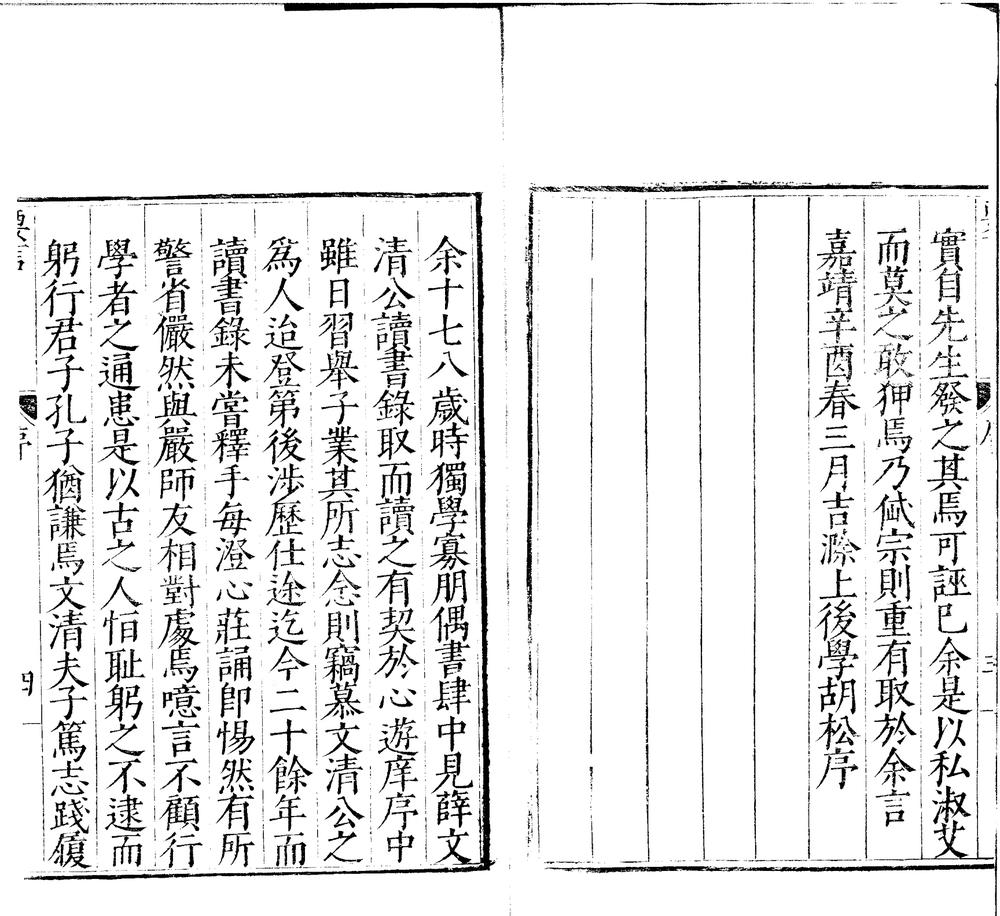 實自先生發之其焉可誣巳余是以私淑艾
而莫之敢狎焉乃倁宗則重有取於余言
嘉靖辛酉春三月吉滁上後學胡松序
余十七八歲時獨學寡朋偶書肆中見薛文
清公讀書錄取而讀之有契於心遊庠序中
雖日習舉子業其所志念則竊慕文清公之
爲人迨登第後涉歷仕途迄今二十餘年而
讀書錄未嘗釋手每澄心莊誦卽惕然有所
警省儼然與嚴師友相對處焉噫言不顧行
學者之通患是以古之人恒耻躬之不逮而
躬行君子孔子猶謙焉文清夫子篤志踐履
四